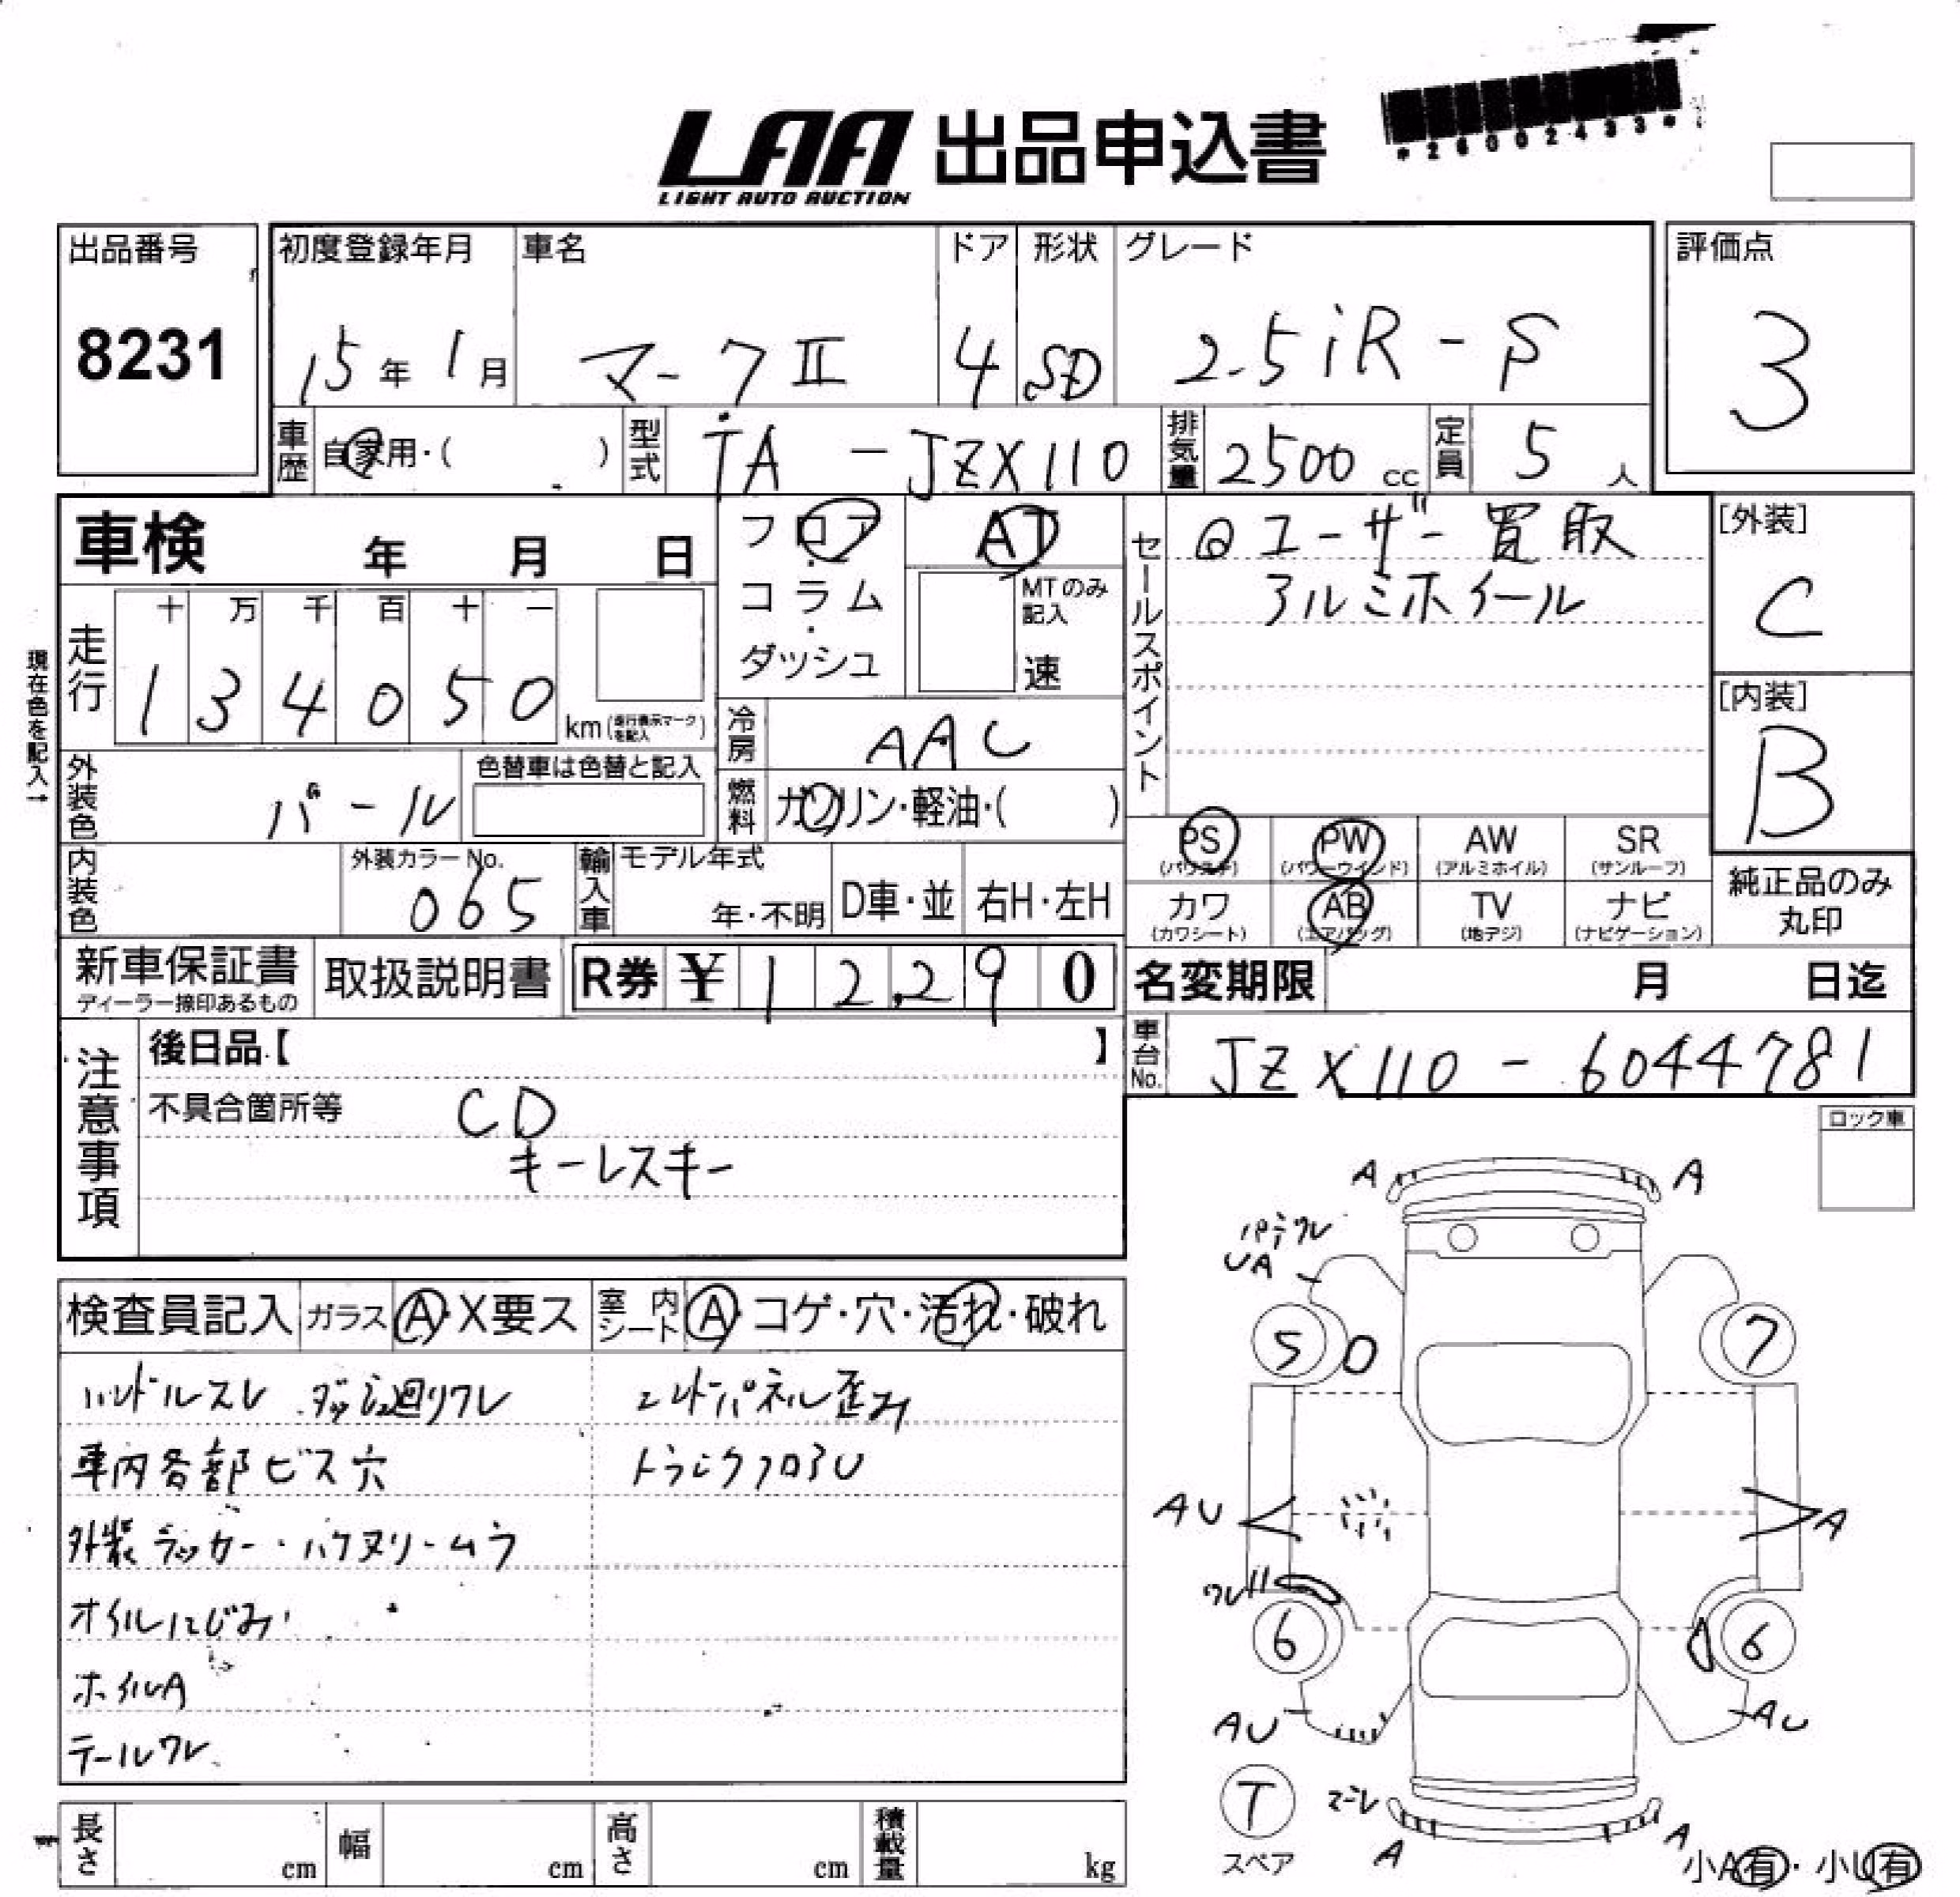 *26002433*
LAA 出品申込書
LIGHT AUTO AUCTION
出品番号 初度登録年月 車名 ドア 形状 グレード 評価点
8231 15年 1月 マークII 4 SD 2.5iR-S 3
車歴 自家用・( ) 型式 TA-JZX110 排気量 2500cc 定員 5人
車検 年 月 日 フロア・コラム・ダッシュ AT
MTのみ記入 速
セールスポイント ◎ユーザー買取
アルミホイール
[外装] C
[内装] B
現在色を記入→
走行 十 万 千 百 十 一
134050 km(走行表示マークを記入)
冷房 AAC
外装色 パール 色替車は色替と記入
燃料 ガソリン・軽油・( )
PS (パワステ) PW (パワーウインド) AW (アルミホイル) SR (サンルーフ)
カワ (カワシート) AB (エアバッグ) TV (地デジ) ナビ (ナビゲーション)
純正品のみ丸印
内装色 外装カラーNo. 065 輸入車 モデル年式 年・不明 D車・並 右H・左H
新車保証書 ディーラー捺印あるもの 取扱説明書 R券 ¥12,290
名変期限 月 日迄
車台No. JZX110-6044781
注意事項 後日品【 】
不具合箇所等 CD
キーレスキー
ロック車
検査員記入 ガラス A・X要ス 室内シート A・コゲ・穴・汚れ・破れ
ハンドルスレ ダッシュ廻りワレ エンドパネル歪み
車内各部ビス穴 トランクフロアU
外装ラッカー・ハケヌリ・ムラ
オイルにじみ
ホイルA
テールワレ
A A
UA
5 7
AU A
ワレ
6 6
AU AU
T
スペア
A A
小A有・小U有
長さ cm 幅 cm 高さ cm 積載量 kg